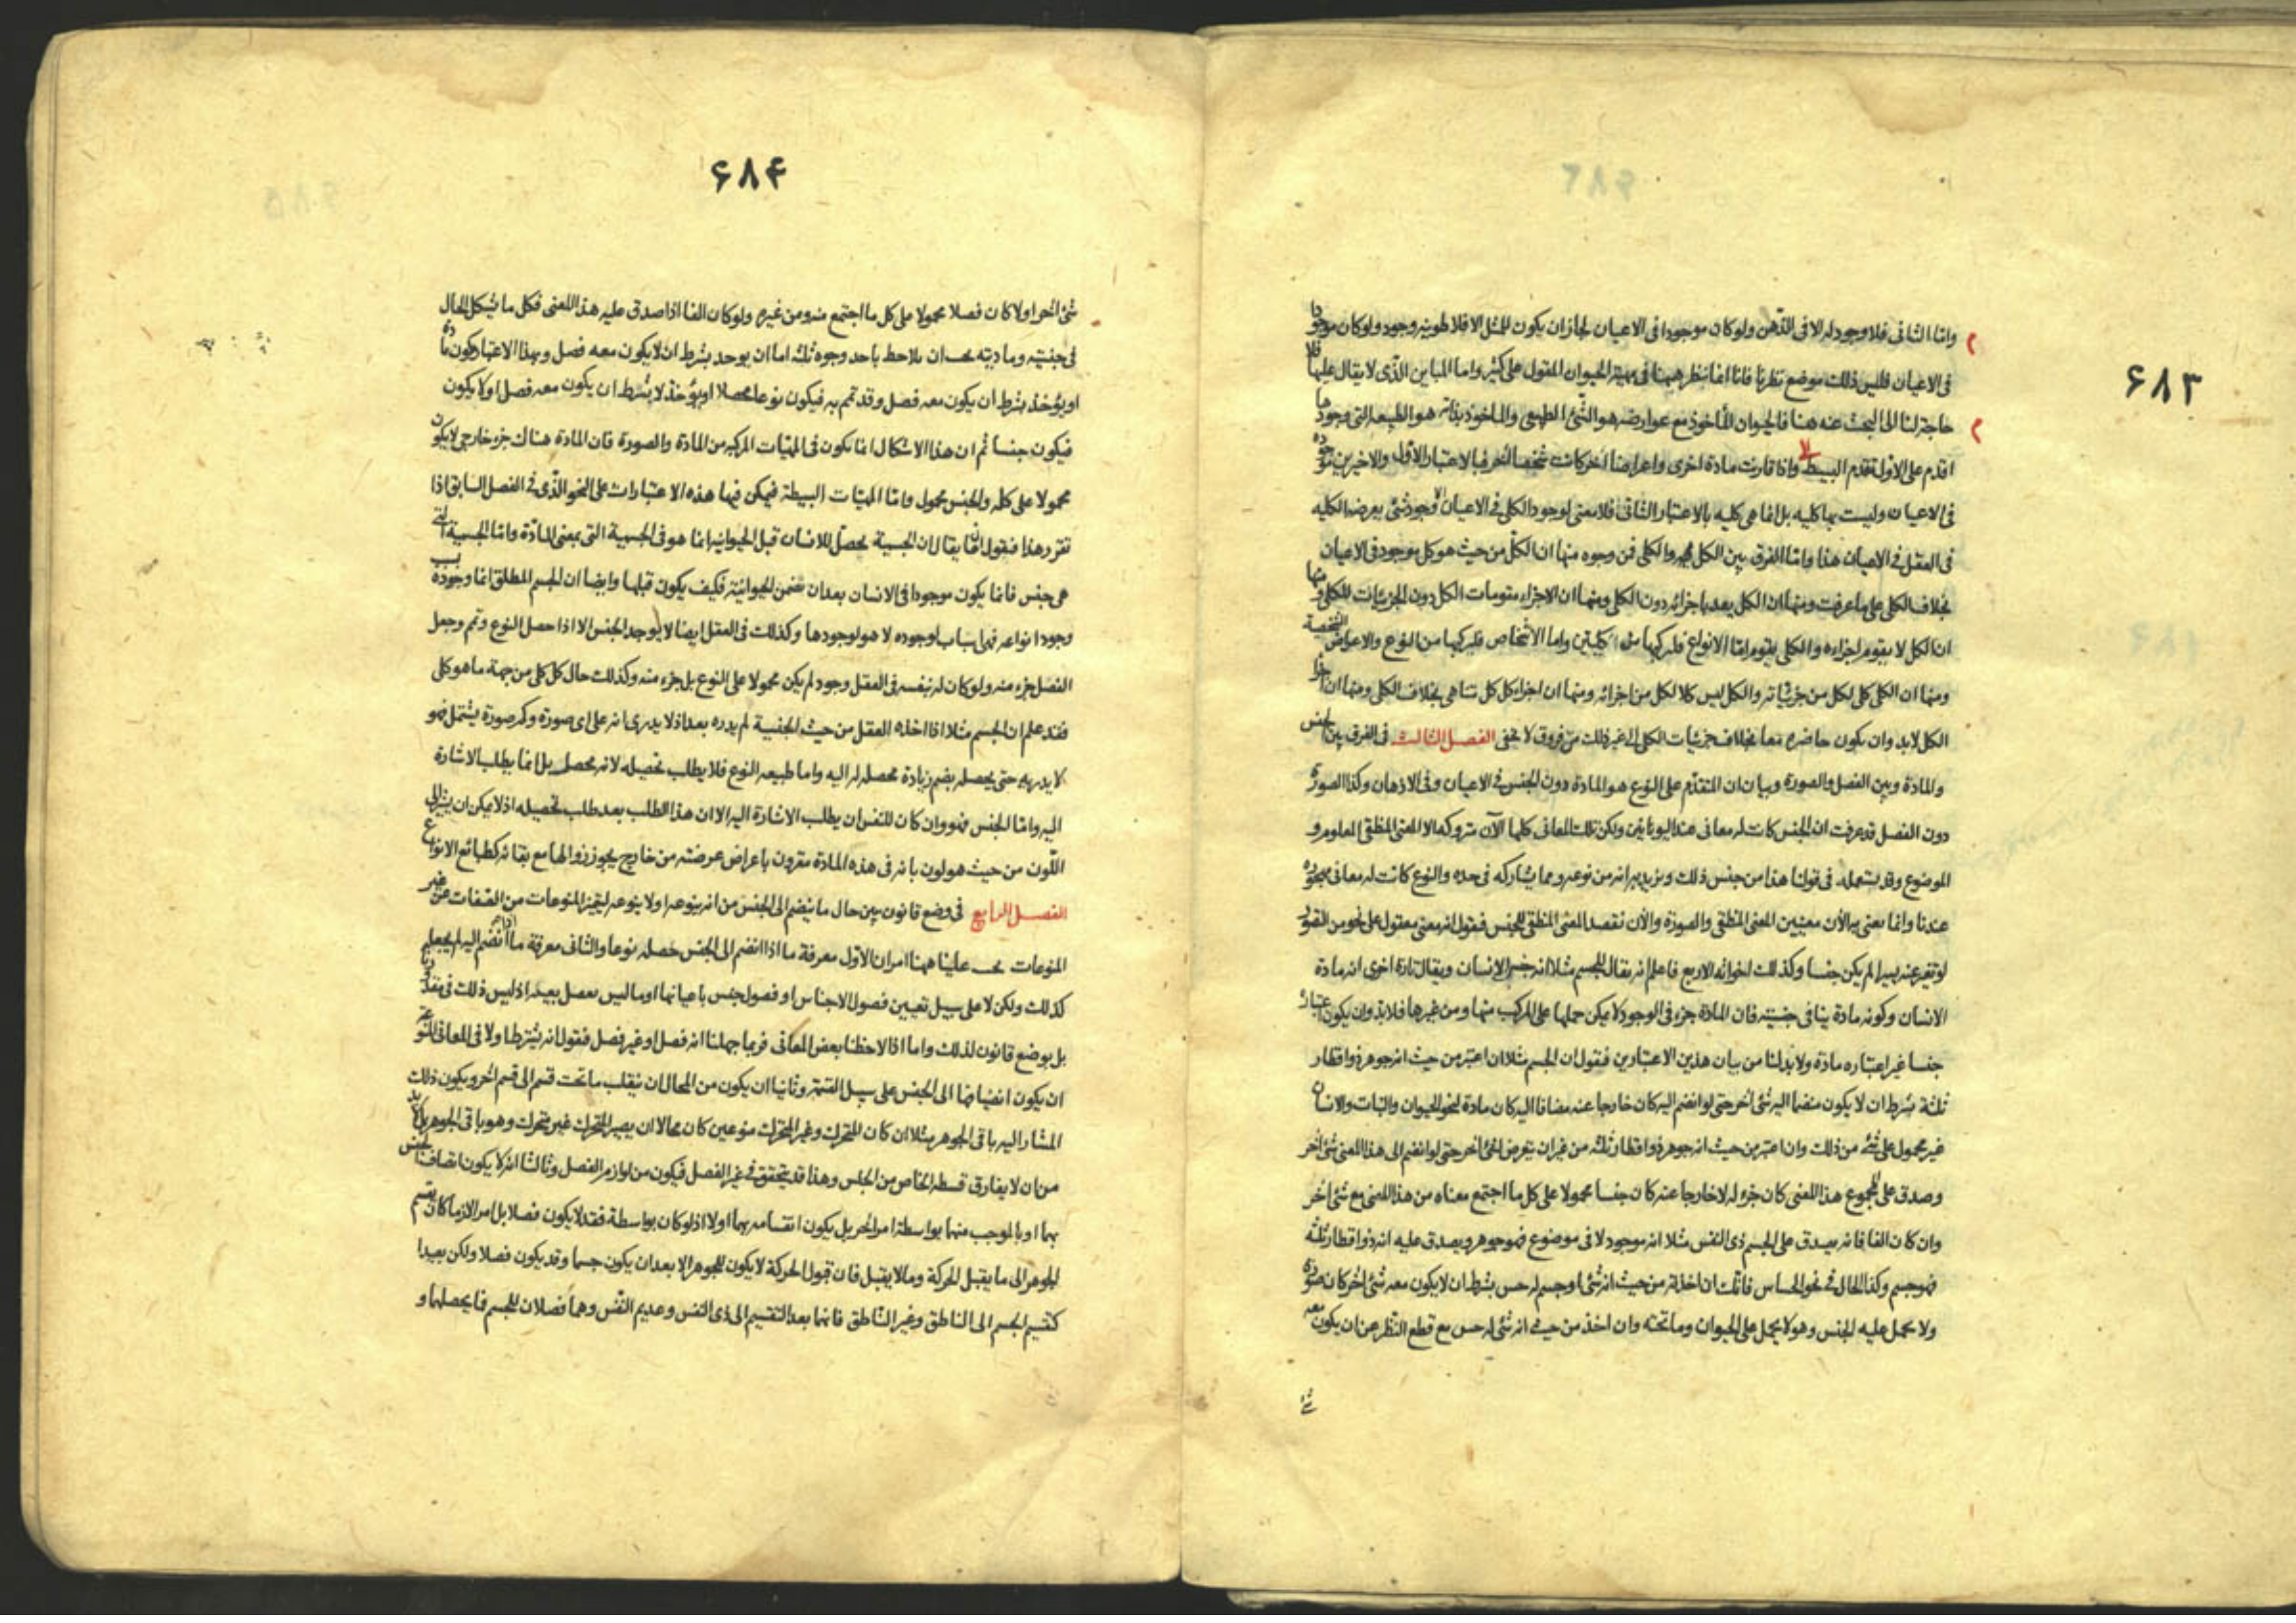 ۶۸۳
واما الثانى فلا وجود له الا فى الذهن ولو كان موجودا فى الاعيان لجاز ان يكون للمثل الافلاطونيه وجود ولو كان موجودا
فى الاعيان فليس ذلك موضع نظرنا فانا انما ننظر ههنا فى مهية الحيوان المقول على كثير واما المباين الذى لا يقال عليها فلا
حاجة لنا الى البحث عنه هنا فالحيوان المأخوذ مع عوارضه هو الشئ الطبيعى والماخوذ بذاته هو الطبيعه التى وجودها
اقدم على الاول تقدم البسيط واذا قارنت مادة اخرى واعراضا اخر كانت شخصا اخر فبالاعتبار الاول والاخيرين موجوده
فى الاعيان وليست بها كليه بل انما هى كليه بالاعتبار الثانى فلا معنى لوجود الكلى فى الاعيان الا وجود شئ يعرضه الكليه
فى العقل فى الاعيان هذا واما الفرق بين الكل والكلى فمن وجوه منها ان الكل من حيث هو كل موجود فى الاعيان
بخلاف الكلى على ما عرفت ومنها ان الكل يعد باجزائه دون الكلى ومنها ان الاجزاء مقومات الكل دون الجزئيات للكلى ومنها
ان الكل لا يقوم اجزاءه والكلى يقوم اما الانواع فلتركبها من الكليتين واما الاشخاص فلتركبها من النوع والاعراض الشخصية
ومنها ان الكلى كلى لكل من جزئياته والكل ليس كلا لكل من اجزائه ومنها ان اجزاء كل كل تتناهى بخلاف الكلى ومنها ان اجزاء
الكل لابد وان يكون حاضره معا بخلاف جزئيات الكلى الى غير ذلك من فروق لا تخفى الفصل الثالث فى الفرق بين الجنس
والمادة وبين الفصل والصورة وبيان ان المتقدم على النوع هو المادة دون الجنس فى الاعيان وفى الاذهان وكذا الصورة
دون الفصل قد عرفت ان الجنس كانت له معانى عند اليونانيين ولكن تلك المعانى كلها الآن متروكه الا المعنى المنطقى المعلوم و
الموضوع وقد يستعمله فى قولنا هذا من جنس ذلك ونريد به انه من نوعه ومما يشاركه فى حده والنوع كانت له معانى مهجوره
عندنا وانما نعنى به الآن معنيين المعنى المنطقى والصورة والآن نقصد المعنى المنطقى للجنس فنقول انه معنى معقول على نحو من التصور
لو تغير عنه يسيرا لم يكن جنسا وكذلك اخواته الاربع فاعلم انه يقال للجسم مثلا انه جنس الانسان ويقال تارة اخرى انه مادة
الانسان وكونه مادة ينافى جنسيته فان المادة جزء فى الوجود لا يمكن حملها على المركب منها ومن غيرها فلابد وان يكون اعتباره
جنسا غير اعتباره مادة ولابد لنا من بيان هذين الاعتبارين فنقول ان الجسم مثلا ان اعتبر من حيث انه جوهر ذو اقطار
ثلثة بشرط ان لا يكون منضما اليه شئ اخر حتى لو انضم اليه كان خارجا عنه مضافا اليه كان مادة لنحو الحيوان والنبات والانسان
غير محمول على شئ من ذلك وان اعتبر من حيث انه جوهر ذو اقطار ثلثة من غير ان يتعرض لشئ اخر حتى لو انضم الى هذا المعنى شئ اخر
وصدق على المجموع هذا المعنى كان جزء له لا خارجا عنه كان جنسا محمولا على كل ما اجتمع معناه من هذا المعنى مع شئ اخر
وان كان الفا فانه يصدق على الجسم ذى النفس مثلا انه موجود لا فى موضوع فهو جوهر ويصدق عليه انه ذو اقطار ثلثه
فهو جسم وكذا الحال فى نحو الحساس فانك ان اخذته من حيث انه شئ او جسم له حس بشرط ان لا يكون معه شئ اخر كان صورة
ولا يحمل عليه الجنس وهو لا يحمل على الحيوان وما تحته وان اخذ من حيث انه شئ له حس مع قطع النظر عن ان يكون معه
شئ
۶۸۴
شئ اخر او لا كان فصلا محمولا على كل ما اجتمع منه ومن غيره ولو كان الفا اذا صدق عليه هذا المعنى فكل ما شكل الحال
فى جنسيته وماديته يجب ان يلاحظ باحد وجوه ثلثه اما ان يوحد بشرط ان لا يكون معه فصل وبهذا الاعتبار يكون مادة
او يؤخذ بشرط ان يكون معه فصل وقد تمم به فيكون نوعا محصلا او يؤخذ لا بشرط ان يكون معه فصل او لا يكون
فيكون جنسا ثم ان هذا الاشكال انما يكون فى المهيات المركبه من المادة والصورة فان المادة هناك جزء خارجى لا يكون
محمولا على كله والجنس محمول واما المهيات البسيطة فيمكن فيها هذه الاعتبارات على النحو الذى فى الفصل السابق اذا
تقرر هذا فنقول انما يقال ان الجسمية تحصل للانسان قبل الحيوانيه انما هو فى الجسمية التى بمعنى المادة واما الجسمية التى
هى جنس فانما يكون موجودا فى الانسان بعد ان تضمن الحيوانية فكيف يكون قبلها وايضا ان الجسم المطلق انما وجوده بسبب
وجود انواعه فهى اسباب لوجوده لا هو لوجودها وكذلك فى العقل ايضا لا يوجد الجنس الا اذا حصل النوع وتم وجعل
الفصل جزء منه ولو كان له بنفسه فى العقل وجود لم يكن محمولا على النوع بل جزء منه وكذلك حال كل كلى من جهة ما هو كلى
فقد علم ان الجسم مثلا اذا اخذه العقل من حيث الجنسية لم يدره بعد اذ لا يدرى انه على اى صورة وكم صورة يشتمل فهو
لا يدريه حتى يحصله بضم زيادة محصله له اليه واما طبيعه النوع فلا يطلب تحصيله لانه محصل بل انما يطلب الاشارة
اليه واما الجنس فهو وان كان للنفس ان يطلب الاشارة اليه الا ان هذا الطلب بعد طلب تحصيله اذ لا يمكن ان يشار الى
اللون من حيث هو لون بانه فى هذه المادة مقرون باعراض عرضته من خارج يجوز زوالها مع بقائه كطبائع الانواع
الفصل الرابع فى وضع قانون يبين حال ما ينضم الى الجنس من انه ينوعه او لا ينوعه ليتميز المنوعات من الصفات عن غير
المنوعات يجب علينا ههنا امران الاول معرفة ما اذا انضم الى الجنس حصله نوعا والثانى معرفة ما اذا انضم اليه لم يجعله
كذلك ولكن لا على سبيل تعيين فصول الاجناس او فصول جنس باعيانها او ما ليس بفصل بعينه اذ ليس ذلك فى مقدورنا
بل بوضع قانون لذلك واما اذا لاحظنا بعض المعانى فربما جهلنا انه فصل او غير فصل فنقول انه يشترط اولا فى المعانى المنوعة
ان يكون انضيافها الى الجنس على سبيل القسمة وثانيا ان يكون من المحال ان ينقلب ما تحت قسم الى قسم اخر ويكون ذلك
المشار اليه باقى الجوهر مثلا ان كان المتحرك وغير المتحرك منوعين كان محالا ان يصير المتحرك غير متحرك وهو باقى الجوهر بل لابد
من ان لا يفارق قسطه الخاص من الجنس وهذا قد يتحقق فى غير الفصل فيكون من لوازم الفصل وثالثا انه لا يكون اتصاف الجنس
بهما او بالموجب منهما بواسطة امر اخر بل يكون انقسامه بهما اولا اذ لو كان بواسطة فقد لا يكون فصلا بل امرا لازما كان يقسم
الجوهر الى ما يقبل الحركة وما لا يقبل فان قبول الحركة لا يكون للجوهر الا بعد ان يكون جسما وقد يكون فصلا ولكن بعيدا
كتقسيم الجسم الى الناطق وغير الناطق فانهما بعد التقسيم الى ذى النفس وعديم النفس وهما فصلان للجسم فا يحصلها و